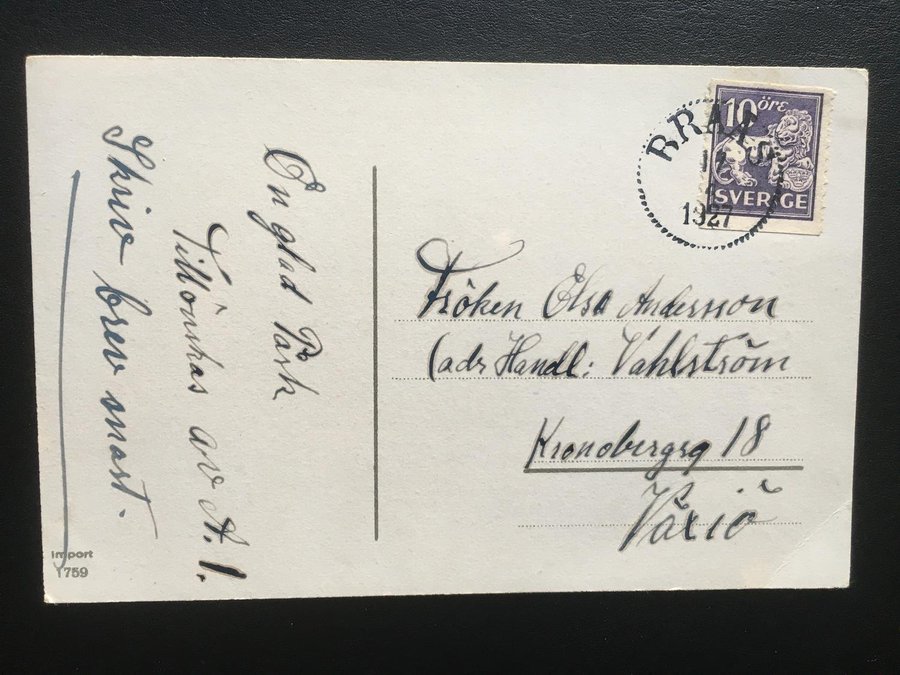 En glad Påsk
Tillönskas av A. I.
Skriv brev snart.
10 ÖRE
SVERIGE
1927
Fröken Elsa Andersson
(adr Handl: Vahlström
Kronobergsg 18
Växiö
Import
1759